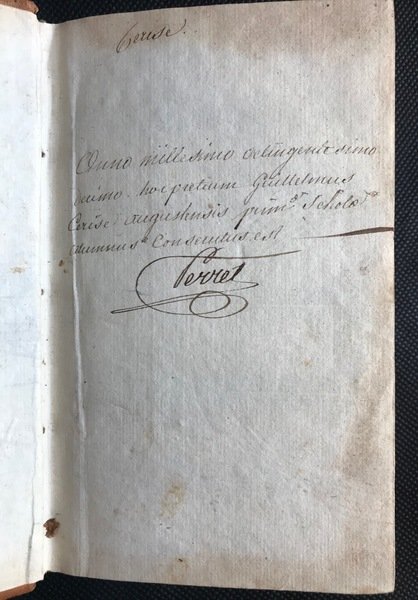 Cerise.
Anno millesimo octingentesimo
decimo hoc pretium Guillelmus
Cerise Augustensis prim. Scholæ
alumnus Consecutus est
Perret